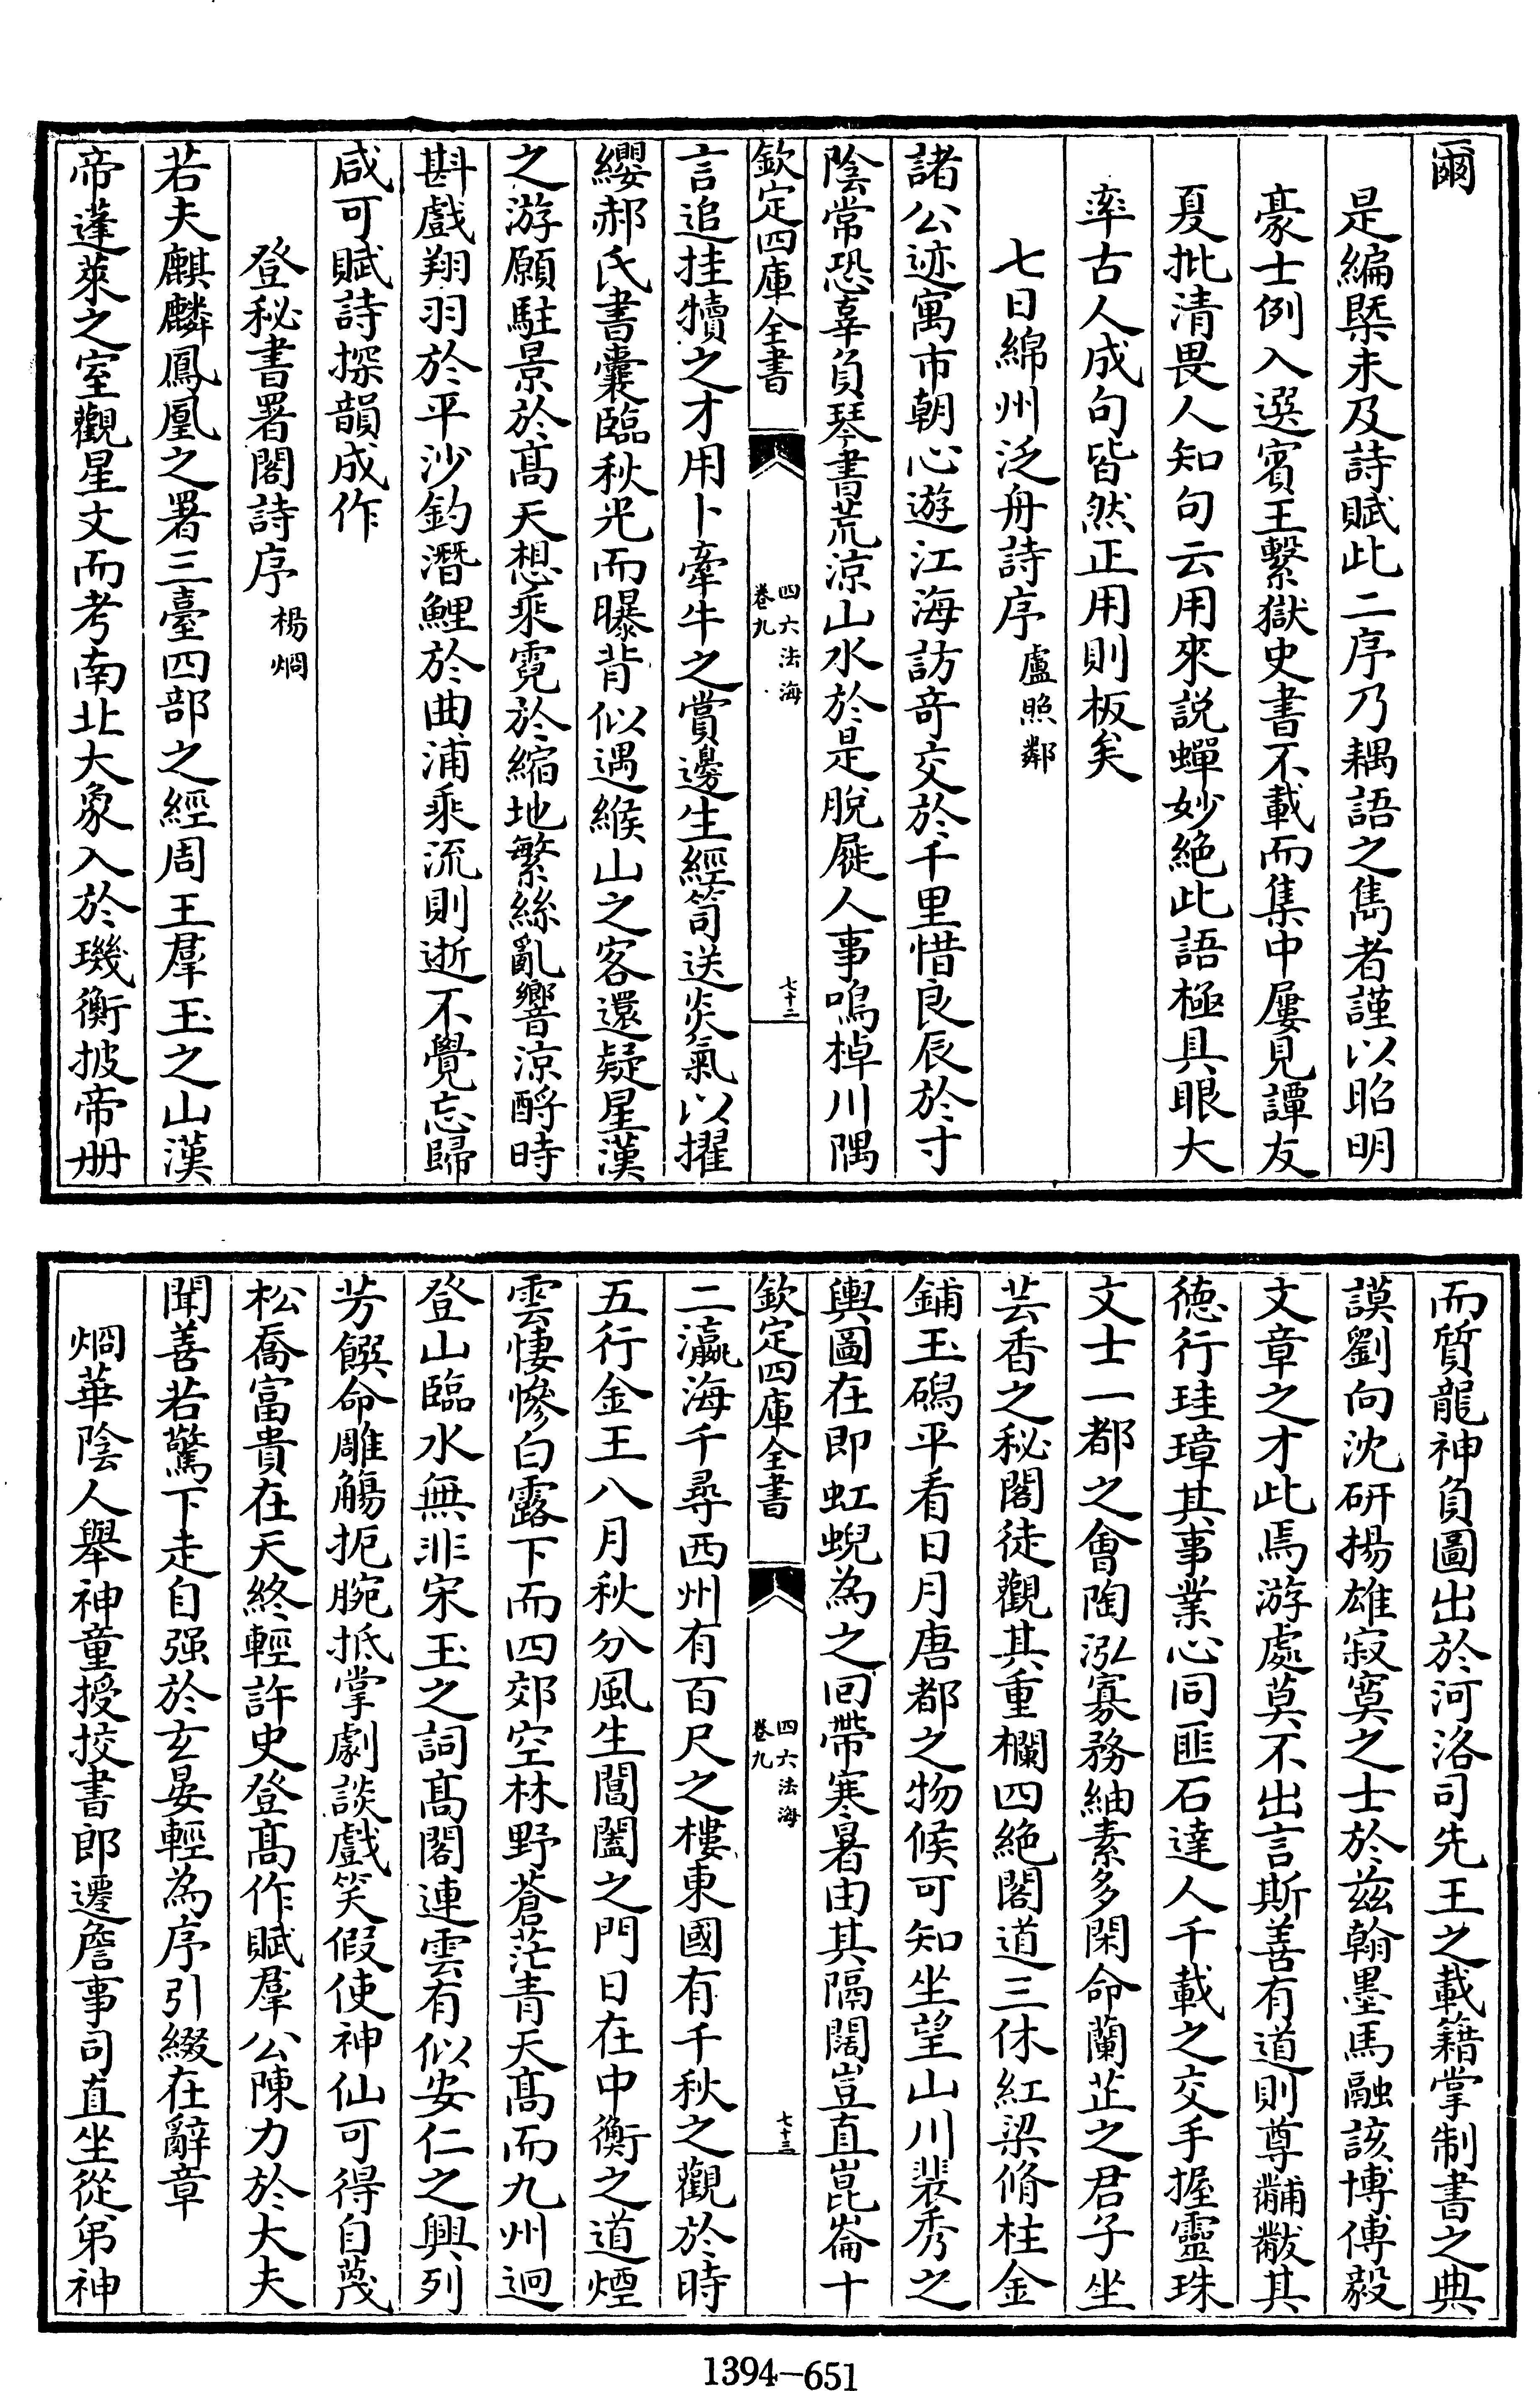 爾
是編槩未及詩賦此二序乃耦語之雋者謹以昭明
豪士例入選賓王繫獄史書不載而集中屢見譚友
夏批清畏人知句云用來説蟬妙絶此語極具眼大
率古人成句皆然正用則板矣
七日綿州泛舟詩序盧照鄰
諸公迹寓市朝心遊江海訪奇交於千里惜良辰於寸
陰常恐辜負琴書荒涼山水於是脫屣人事鳴棹川隅
欽定四庫全書
四六法海
卷九
七十二
言追挂犢之才用卜牽牛之賞邊生經笥送炎氣以擢
纓郝氏書囊臨秋光而曝背似遇緱山之客還疑星漢
之游願駐景於髙天想乘霓於縮地繁絲亂響涼酹時
斟戲翔羽於平沙釣潛鯉於曲浦乘流則逝不覺忘歸
咸可賦詩探韻成作
登秘書署閣詩序楊烱
若夫麒麟鳳凰之署三臺四部之經周王羣玉之山漢
帝蓬萊之室觀星文而考南北大象入於璣衡披帝册
而質龍神負圖出於河洛司先王之載籍掌制書之典
謨劉向沈研揚雄寂寞之士於兹翰墨馬融該博傅毅
文章之才此焉游處莫不出言斯善有道則尊黼黻其
徳行珪璋其事業心同匪石達人千載之交手握靈珠
文士一都之㑹陶泓寡務紬素多閑命蘭芷之君子坐
芸香之秘閣徒觀其重欄四絶閣道三休紅梁脩柱金
鋪玉碣平看日月唐都之物候可知坐望山川裴秀之
輿圖在即虹蜺為之囘帶寒暑由其隔闊豈直崑崙十
欽定四庫全書
四六法海
卷九
七十三
二瀛海千尋西州有百尺之樓東國有千秋之觀於時
五行金王八月秋分風生閶闔之門日在中衡之道煙
雲悽慘白露下而四郊空林野蒼茫青天髙而九州迥
登山臨水無非宋玉之詞髙閣連雲有似安仁之興列
芳饌命雕觴扼腕抵掌劇談戲笑假使神仙可得自蔑
松喬富貴在天終輕許史登髙作賦羣公陳力於大夫
聞善若驚下走自强於玄晏輕為序引綴在辭章
烱華陰人舉神童授挍書郎遷詹事司直坐從弟神
1394-651